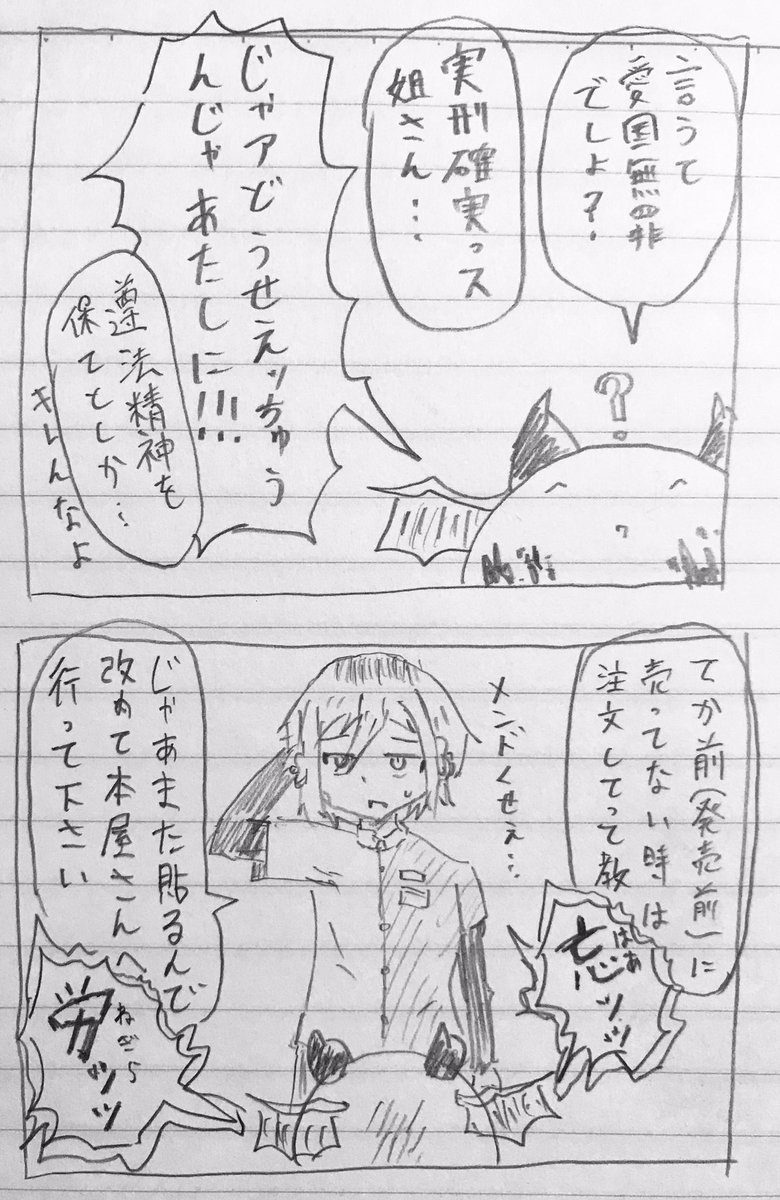 言うて
愛国無罪
でしょ?
実刑確実っス
姐さん…
じゃァどうせえッちゅう
んじゃあたしに!!!
遵法精神を
保てとしか…
キレんなよ
?
てか前(発売前)に
売ってない時は
注文してって教
はぁ
忘ッッ
メンドくせぇ…
じゃあまた貼るんで
改めて本屋さんへ
行って下さい
ねぎら
労ッッ